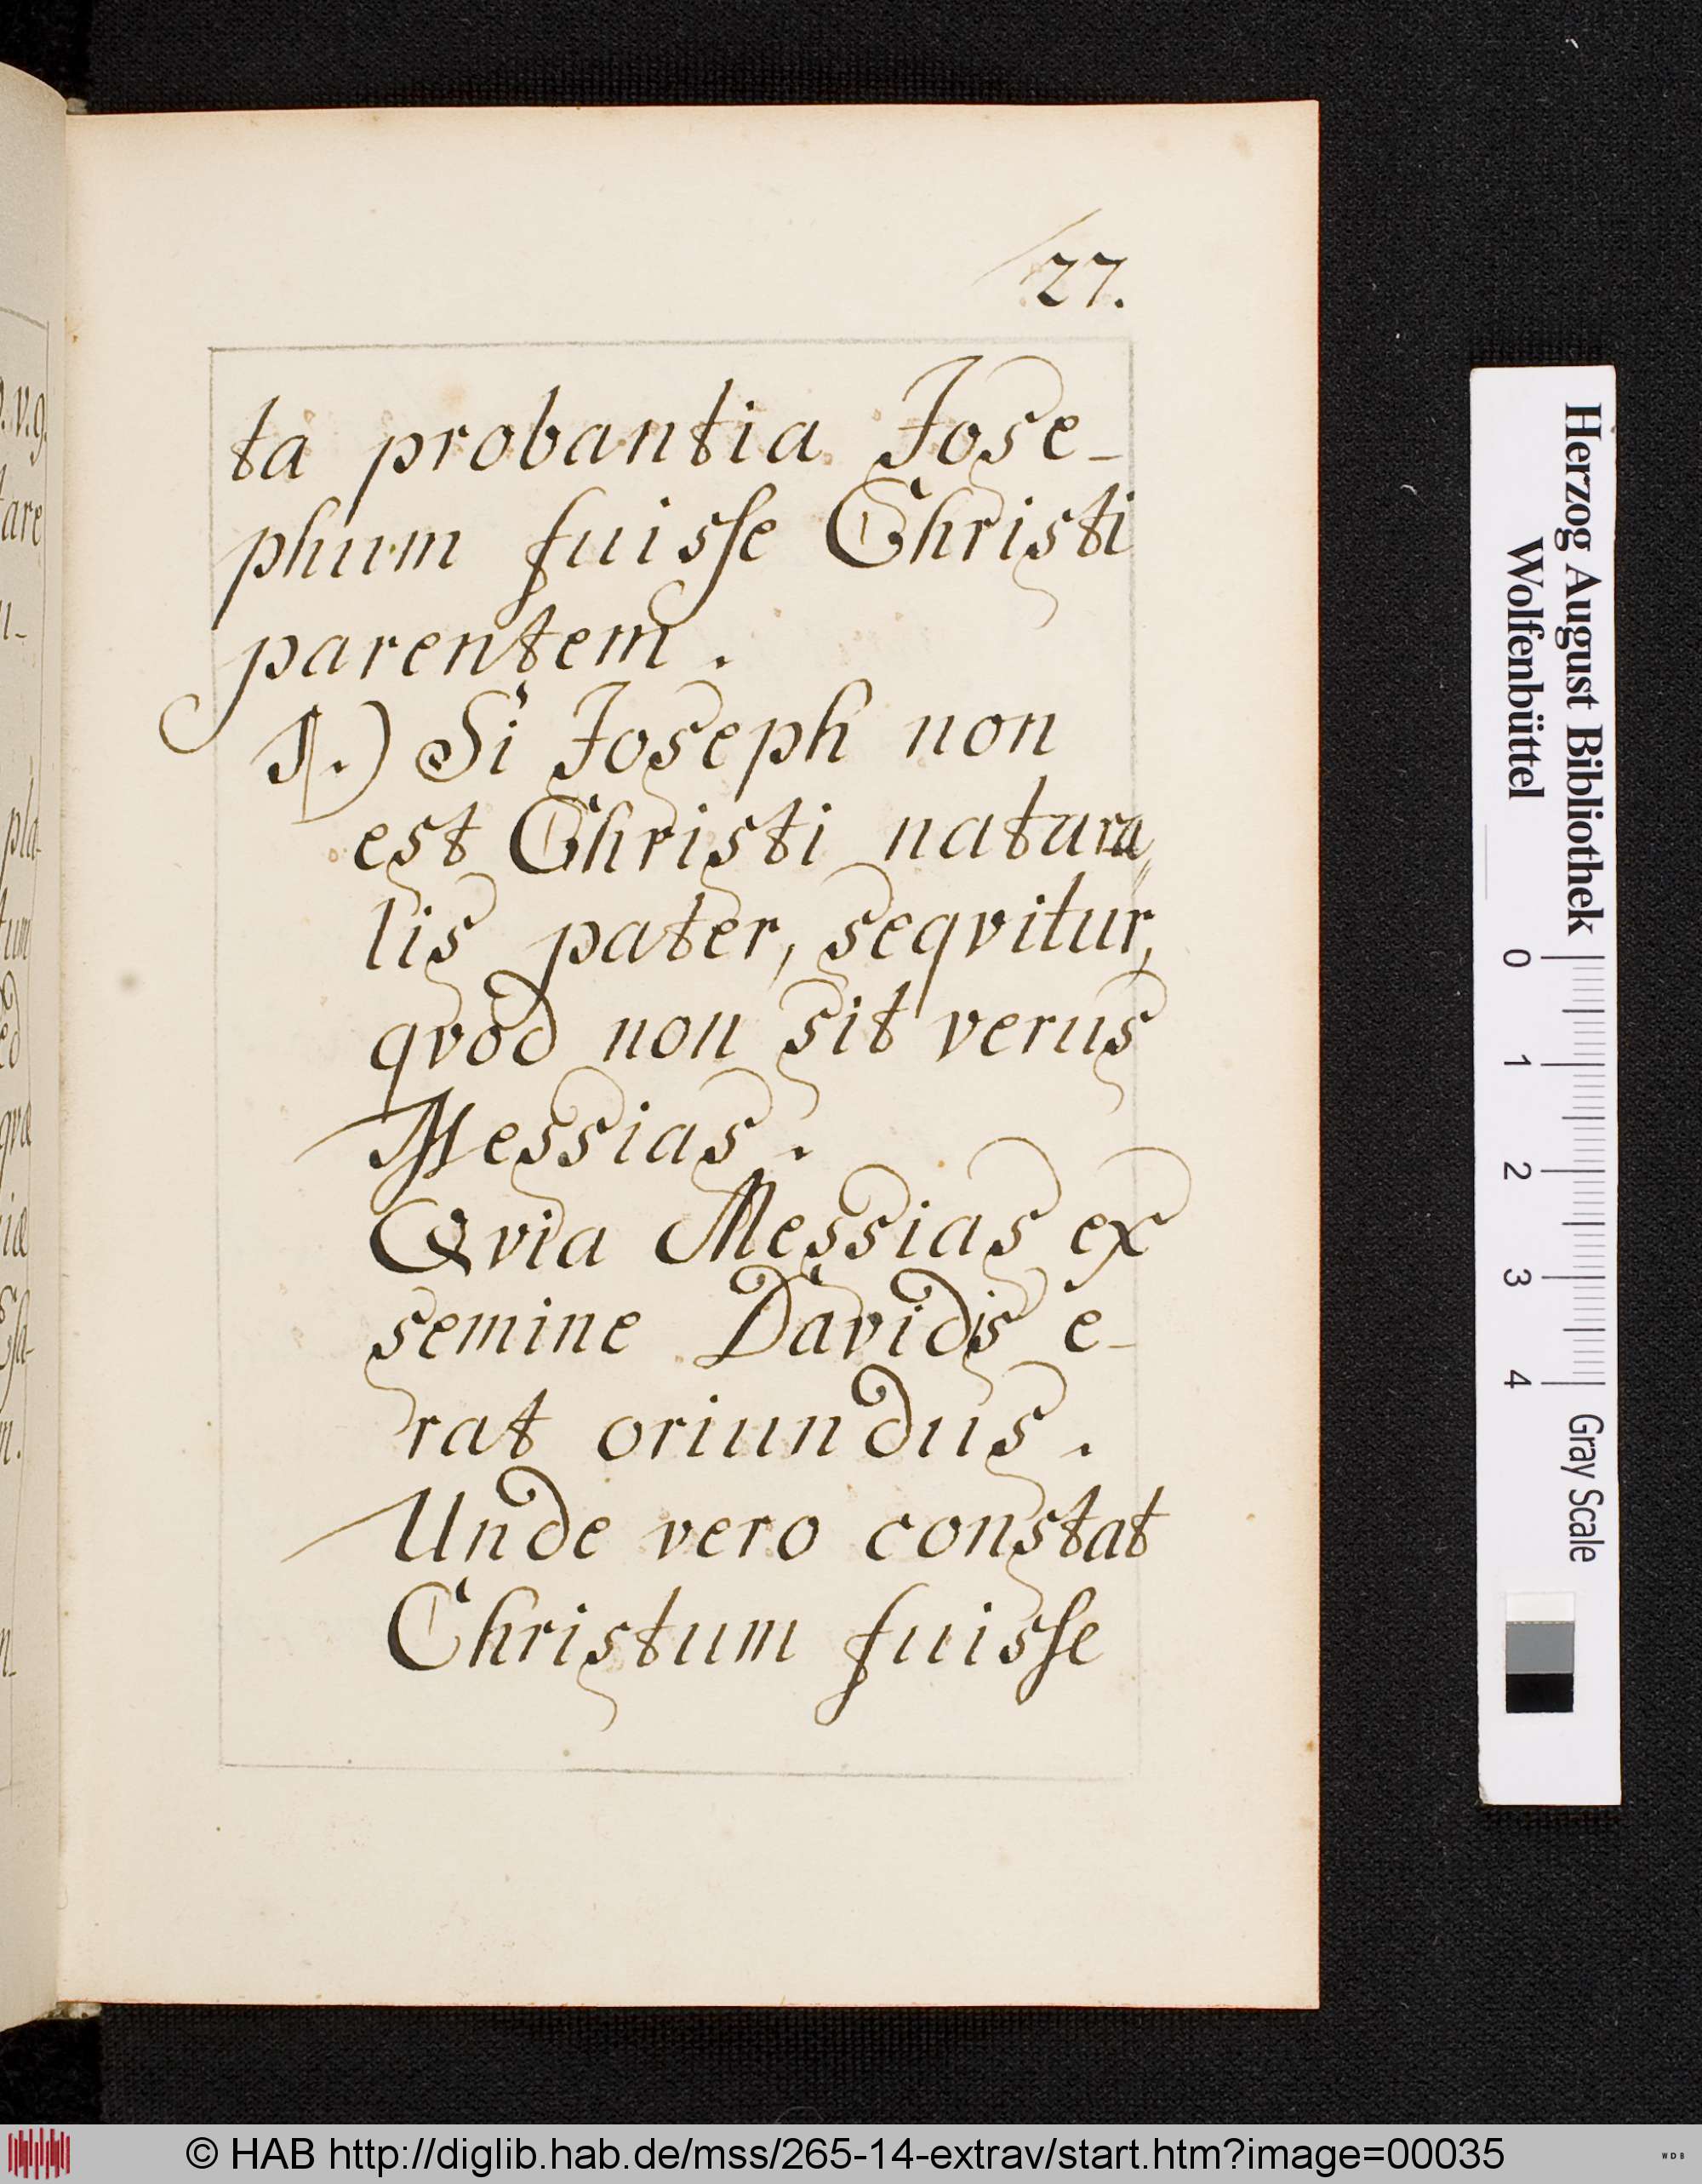 27.
ta probantia Jose-
phum fuisse Christi
parentem.
1.) Si Joseph non
est Christi natura
lis pater, seqvitur,
qvod non sit verus
Messias.
Qvia Messias ex
semine Davidis e-
rat oriundus.
Unde vero constat
Christum fuisse
Herzog August Bibliothek
Wolfenbüttel
0 1 2 3 4
Gray Scale
© HAB http://diglib.hab.de/mss/265-14-extrav/start.htm?image=00035
WDB